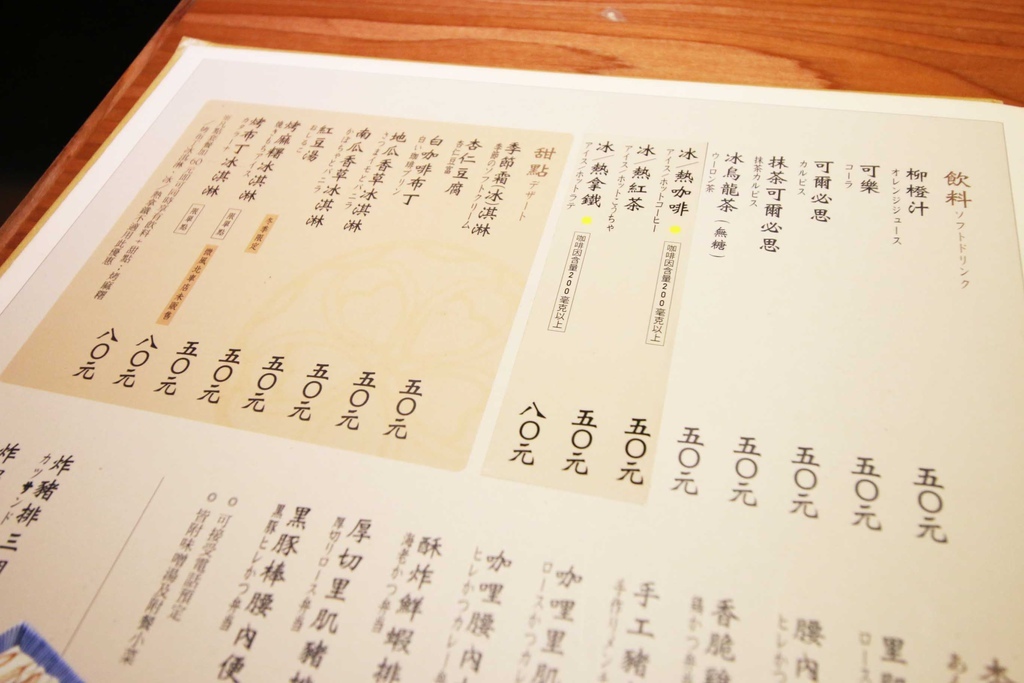 飲料 ソフトドリンク
柳橙汁
オレンジジュース
五〇元
可樂
コーラ
五〇元
可爾必思
カルピス
五〇元
抹茶可爾必思
抹茶カルピス
五〇元
冰烏龍茶（無糖）
ウーロン茶
五〇元
冰／熱咖啡 咖啡因含量200毫克以上
アイス／ホットコーヒー
五〇元
冰／熱紅茶
アイス／ホットこうちゃ
五〇元
冰／熱拿鐵 咖啡因含量200毫克以上
アイス／ホットラテ
八〇元
甜點 デザート
季節霜冰淇淋
季節のソフトクリーム
五〇元
杏仁豆腐
杏仁豆腐
五〇元
白咖啡布丁
白い珈琲プリン
五〇元
地瓜香草冰淇淋
さつまイモとバニラ
五〇元
南瓜香草冰淇淋
かぼちゃとバニラ
五〇元
紅豆湯 冬季限定
おしるこ
五〇元
烤麻糬冰淇淋 限單點 微風北車店未販售
焼きもちアイス
八〇元
烤布丁冰淇淋 限單點
八〇元
里
ロース
腰內
ヒレかつ
香脆雞
手工豬
咖哩里肌
ロースかつカレ
咖哩腰內
ヒレかつカレー
酥炸鮮蝦排
海老かつ弁当
厚切里肌豬排
厚切りロースかつ弁当
黑豚棒腰內便
黒豚ヒレかつ弁当
○可接受電話預定
○皆附味噌湯及附餐小菜
炸豬排三明
カツサンド
炸